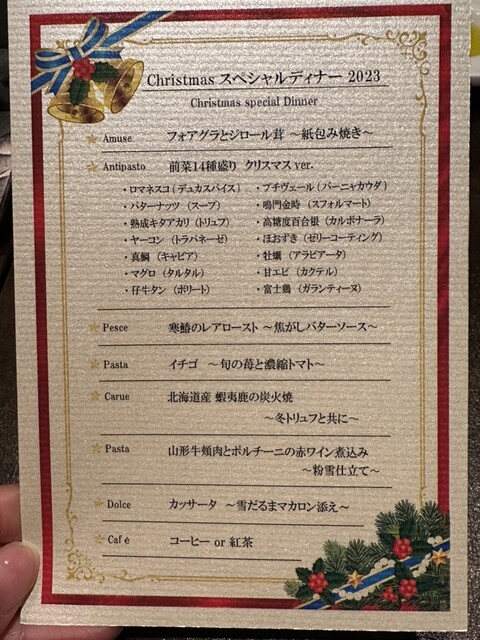 Christmas スペシャルディナー 2023
Christmas special Dinner
Amuse フォアグラとジロール茸 ～紙包み焼き～
Antipasto 前菜14種盛り クリスマス ver.
・ロマネスコ（デュカスパイス） ・プチヴェール（バーニャカウダ）
・バターナッツ（スープ） ・鳴門金時（スフォルマート）
・熟成キタアカリ（トリュフ） ・高糖度百合根（カルボナーラ）
・ヤーコン（トラパネーゼ） ・ほおずき（ゼリーコーティング）
・真鯛（キャビア） ・牡蠣（アラビアータ）
・マグロ（タルタル） ・甘エビ（カクテル）
・仔牛タン（ボリート） ・富士鶏（ガランティーヌ）
Pesce 寒鰆のレアロースト ～焦がしバターソース～
Pasta イチゴ ～旬の苺と濃縮トマト～
Carue 北海道産 蝦夷鹿の炭火焼
～冬トリュフと共に～
Pasta 山形牛頬肉とポルチーニの赤ワイン煮込み
～粉雪仕立て～
Dolce カッサータ ～雪だるまマカロン添え～
Café コーヒー or 紅茶